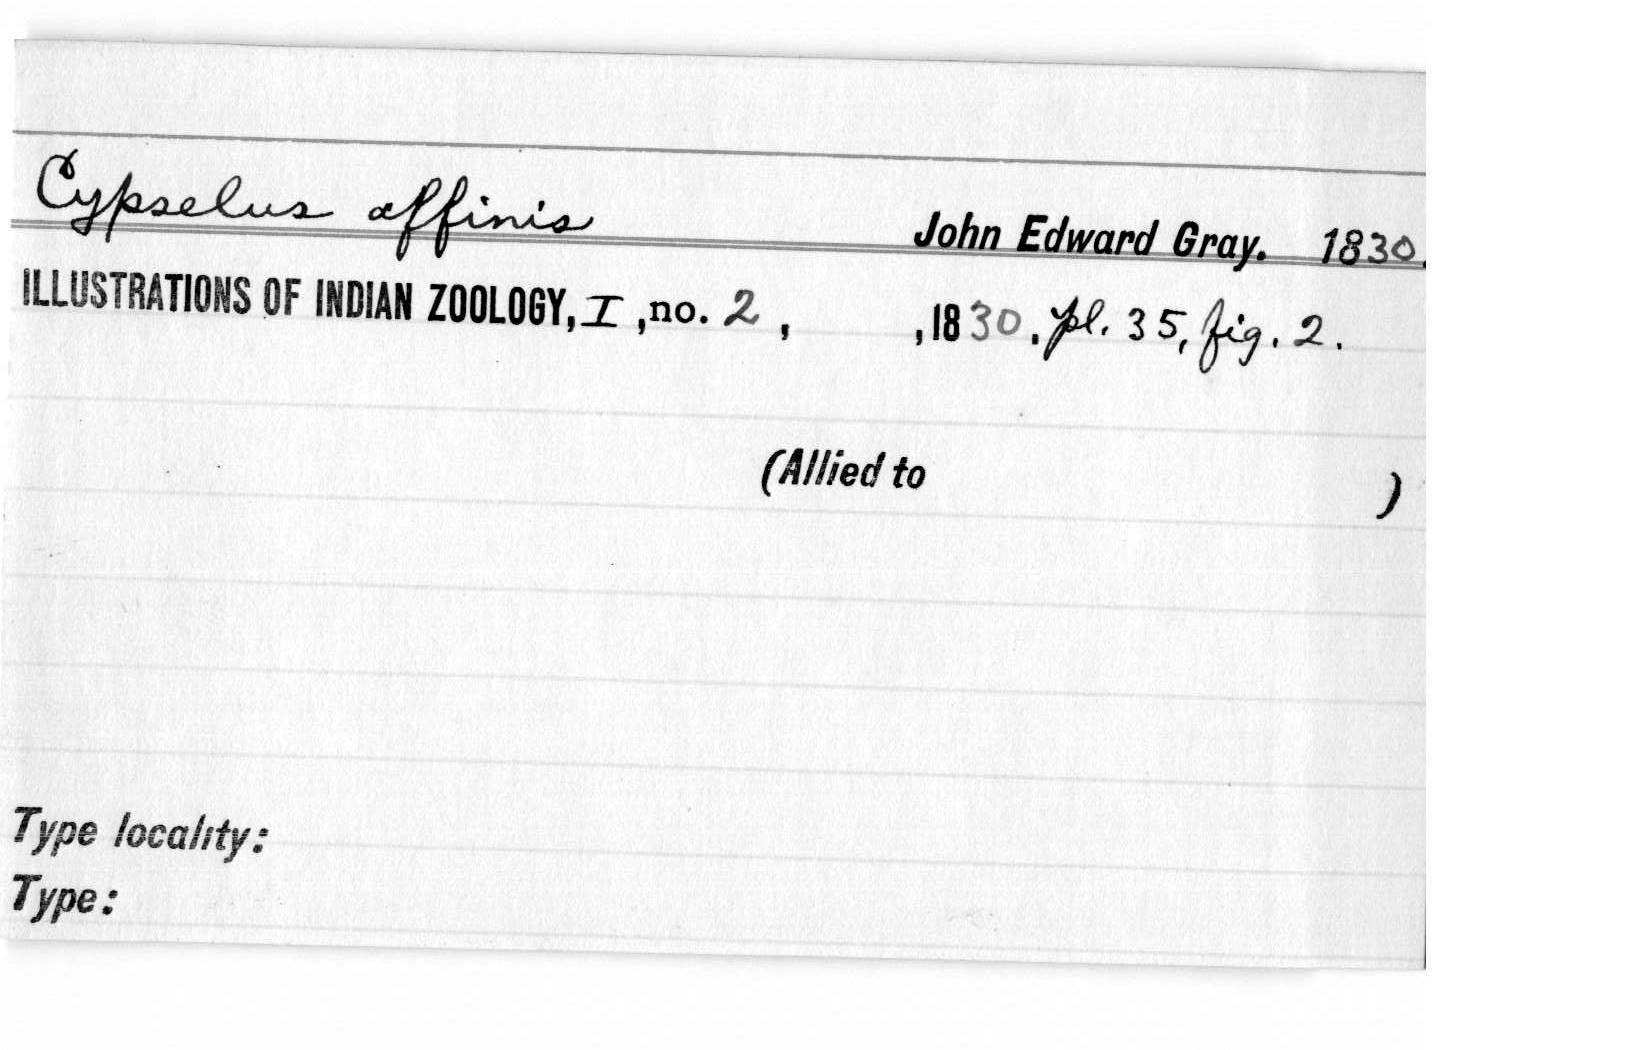 Cypselus affinis John Edward Gray. 1830.
ILLUSTRATIONS OF INDIAN ZOOLOGY, I, no. 2, , 1830, pl. 35, fig. 2.
(Allied to )
Type locality:
Type: